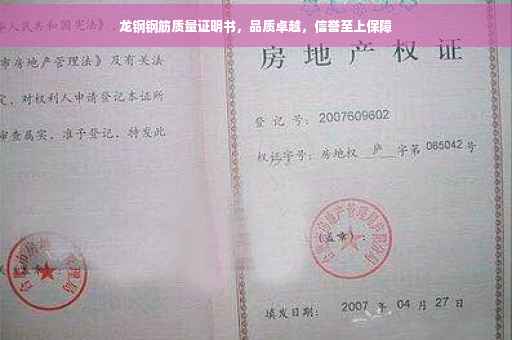 龙钢钢筋质量证明书，品质卓越，信誉至上保障
人民共和国宪法》、
市房地产管理法》及有关法
定，对权利人申请登记本证所
审查属实，准予登记，特发此
房地产权证
登记号：2007609602
权证字号：房地权 庐 字第 065042 号
(盖章)：
填发日期：2007 年 04 月 27 日